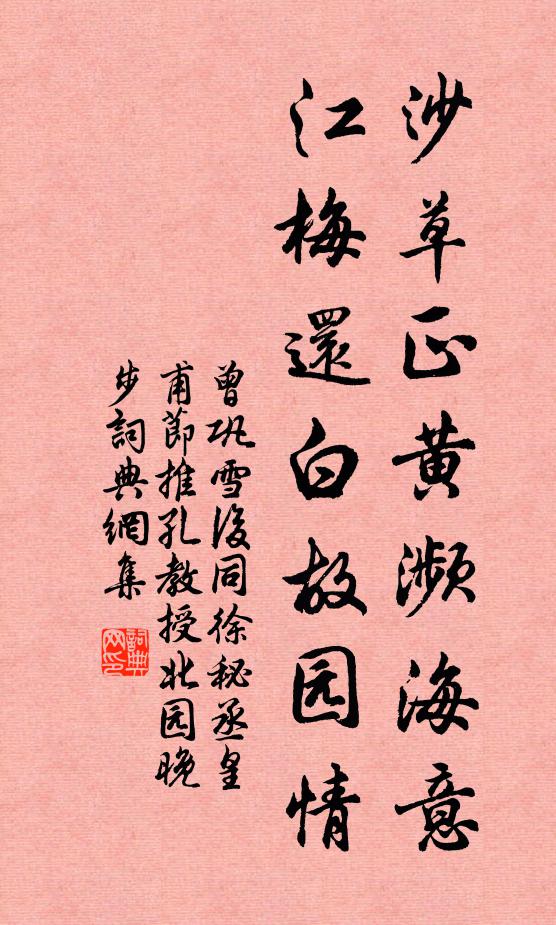 沙草正黄濒海意
江梅還白故园情
曾巩雪後同徐秘丞皇
甫節推孔教授北园晚
步詞典網集
詞典
网印